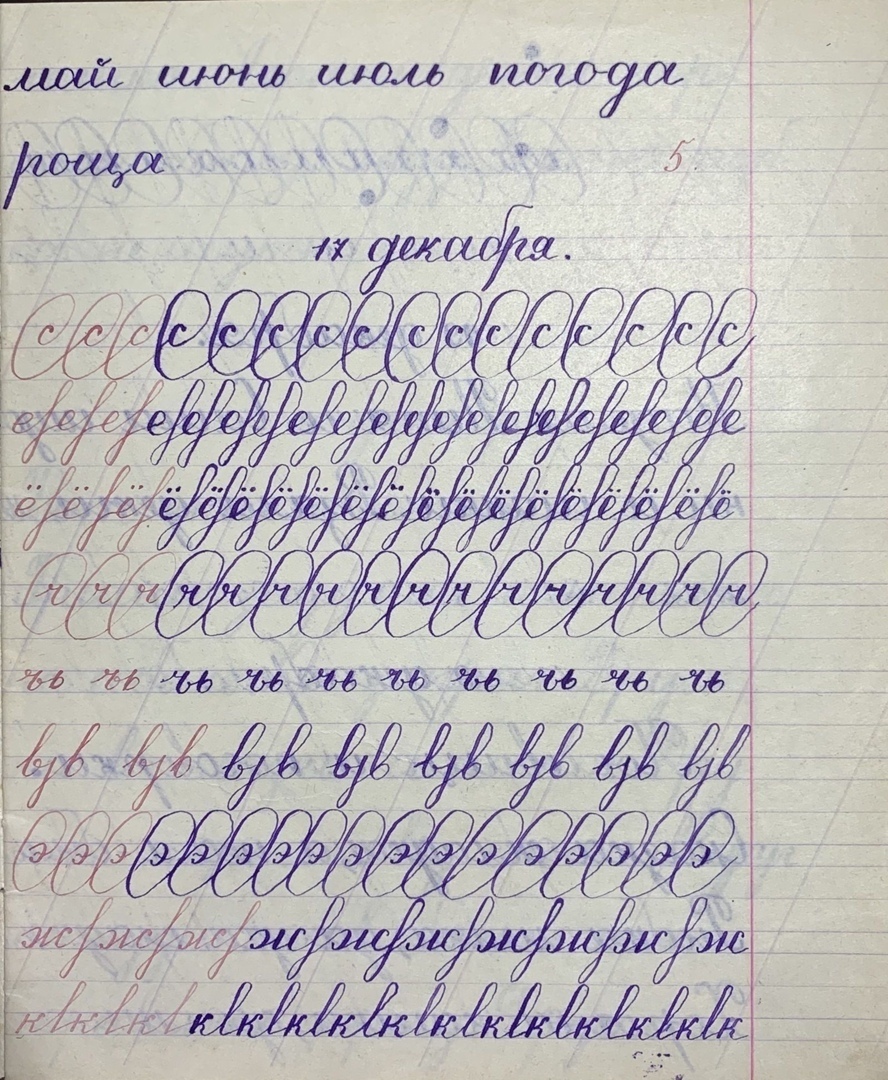 май июнь июль погода
роща 5
17 декабря.
с с с с с с с с с с с с с с с с
е е е е е е е е е е е е е е е е е е е е
ё ё ё ё ё ё ё ё ё ё ё ё ё ё ё ё ё ё ё
ч ч ч ч ч ч ч ч ч ч ч ч ч ч ч ч
ъь ъь ъь ъь ъь ъь ъь ъь ъь ъь
вjв вjв вjв вjв вjв вjв вjв вjв
э э э э э э э э э э э э э э э э
ж ж ж ж ж ж ж ж ж ж
к к к к к к к к к к к к к к к